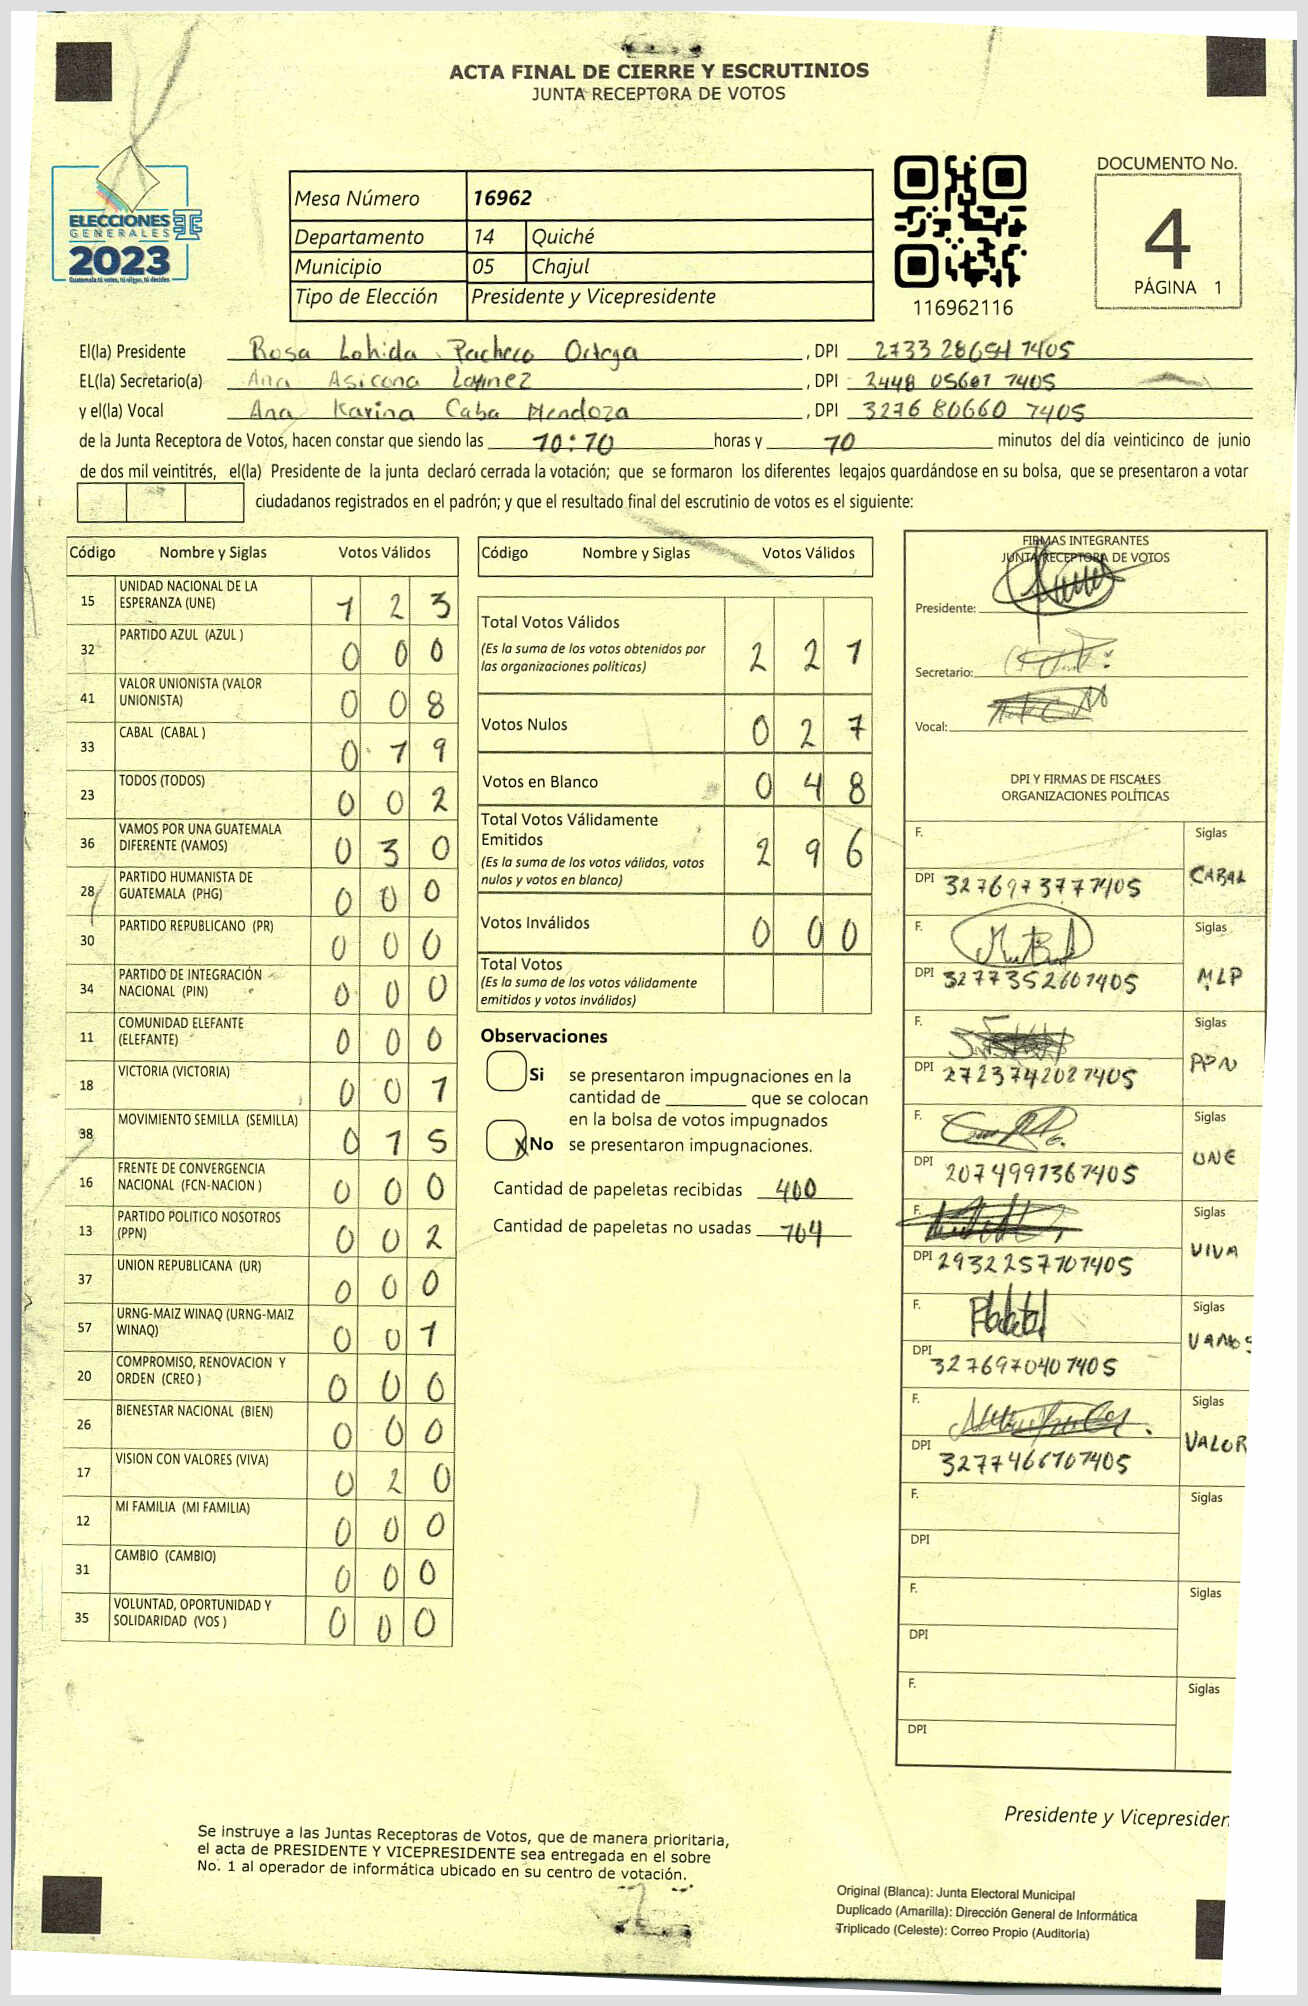 ACTA FINAL DE CIERRE Y ESCRUTINIOS
JUNTA RECEPTORA DE VOTOS
ELECCIONES
GENERALES
2023
Guatemala tú votes, tú eliges, tú decides
Mesa Número 16962
Departamento 14 Quiché
Municipio 05 Chajul
Tipo de Elección Presidente y Vicepresidente
116962116
DOCUMENTO No.
4
PÁGINA 1
El(la) Presidente Rosa Lohida Pacheco Ortega , DPI 2733 28654 1405
EL(la) Secretario(a) Ana Asicona , DPI 2448 05601 1405
y el(la) Vocal Ana Karina Caba Mendoza , DPI 3276 80660 1405
de la Junta Receptora de Votos, hacen constar que siendo las 10:10 horas y 10 minutos del día veinticinco de junio
de dos mil veintitrés, el(la) Presidente de la junta declaró cerrada la votación; que se formaron los diferentes legajos guardándose en su bolsa, que se presentaron a votar
ciudadanos registrados en el padrón; y que el resultado final del escrutinio de votos es el siguiente:
Código Nombre y Siglas Votos Válidos
15 UNIDAD NACIONAL DE LA ESPERANZA (UNE) 1 2 3
32 PARTIDO AZUL (AZUL ) 0 0 0
41 VALOR UNIONISTA (VALOR UNIONISTA) 0 0 8
33 CABAL (CABAL ) 0 1 9
23 TODOS (TODOS) 0 0 2
36 VAMOS POR UNA GUATEMALA DIFERENTE (VAMOS) 0 3 0
28 PARTIDO HUMANISTA DE GUATEMALA (PHG) 0 0 0
30 PARTIDO REPUBLICANO (PR) 0 0 0
34 PARTIDO DE INTEGRACIÓN NACIONAL (PIN) 0 0 0
11 COMUNIDAD ELEFANTE (ELEFANTE) 0 0 0
18 VICTORIA (VICTORIA) 0 0 1
38 MOVIMIENTO SEMILLA (SEMILLA) 0 1 5
16 FRENTE DE CONVERGENCIA NACIONAL (FCN-NACION ) 0 0 0
13 PARTIDO POLITICO NOSOTROS (PPN) 0 0 2
37 UNION REPUBLICANA (UR) 0 0 0
57 URNG-MAIZ WINAQ (URNG-MAIZ WINAQ) 0 0 1
20 COMPROMISO, RENOVACION Y ORDEN (CREO ) 0 0 0
26 BIENESTAR NACIONAL (BIEN) 0 0 0
17 VISION CON VALORES (VIVA) 0 2 0
12 MI FAMILIA (MI FAMILIA) 0 0 0
31 CAMBIO (CAMBIO) 0 0 0
35 VOLUNTAD, OPORTUNIDAD Y SOLIDARIDAD (VOS ) 0 0 0
Código Nombre y Siglas Votos Válidos
Total Votos Válidos 2 2 1
(Es la suma de los votos obtenidos por
las organizaciones políticas)
Votos Nulos 0 2 7
Votos en Blanco 0 4 8
Total Votos Válidamente
Emitidos 2 9 6
(Es la suma de los votos válidos, votos
nulos y votos en blanco)
Votos Inválidos 0 0 0
Total Votos
(Es la suma de los votos válidamente
emitidos y votos inválidos)
Observaciones
Si se presentaron impugnaciones en la
cantidad de ________ que se colocan
en la bolsa de votos impugnados
X No se presentaron impugnaciones.
Cantidad de papeletas recibidas 400
Cantidad de papeletas no usadas 104
FIRMAS INTEGRANTES
JUNTA RECEPTORA DE VOTOS
Presidente:
Secretario:
Vocal:
DPI Y FIRMAS DE FISCALES
ORGANIZACIONES POLÍTICAS
F. Siglas
DPI 3276973771405 CABAL
F. Siglas
DPI 3277352601405 MLP
F. Siglas
DPI 2723742021405 PPN
F. Siglas
DPI 2074991361405 UNE
F. Siglas
DPI 2932257101405 VIVA
F. Siglas
DPI 3276970401405 VAMOS
F. Siglas
DPI 3277466101405 VALOR
F. Siglas
DPI
F. Siglas
DPI
F. Siglas
DPI
Presidente y Vicepresiden
Se instruye a las Juntas Receptoras de Votos, que de manera prioritaria,
el acta de PRESIDENTE Y VICEPRESIDENTE sea entregada en el sobre
No. 1 al operador de informática ubicado en su centro de votación.
Original (Blanca): Junta Electoral Municipal
Duplicado (Amarilla): Dirección General de Informática
Triplicado (Celeste): Correo Propio (Auditoría)